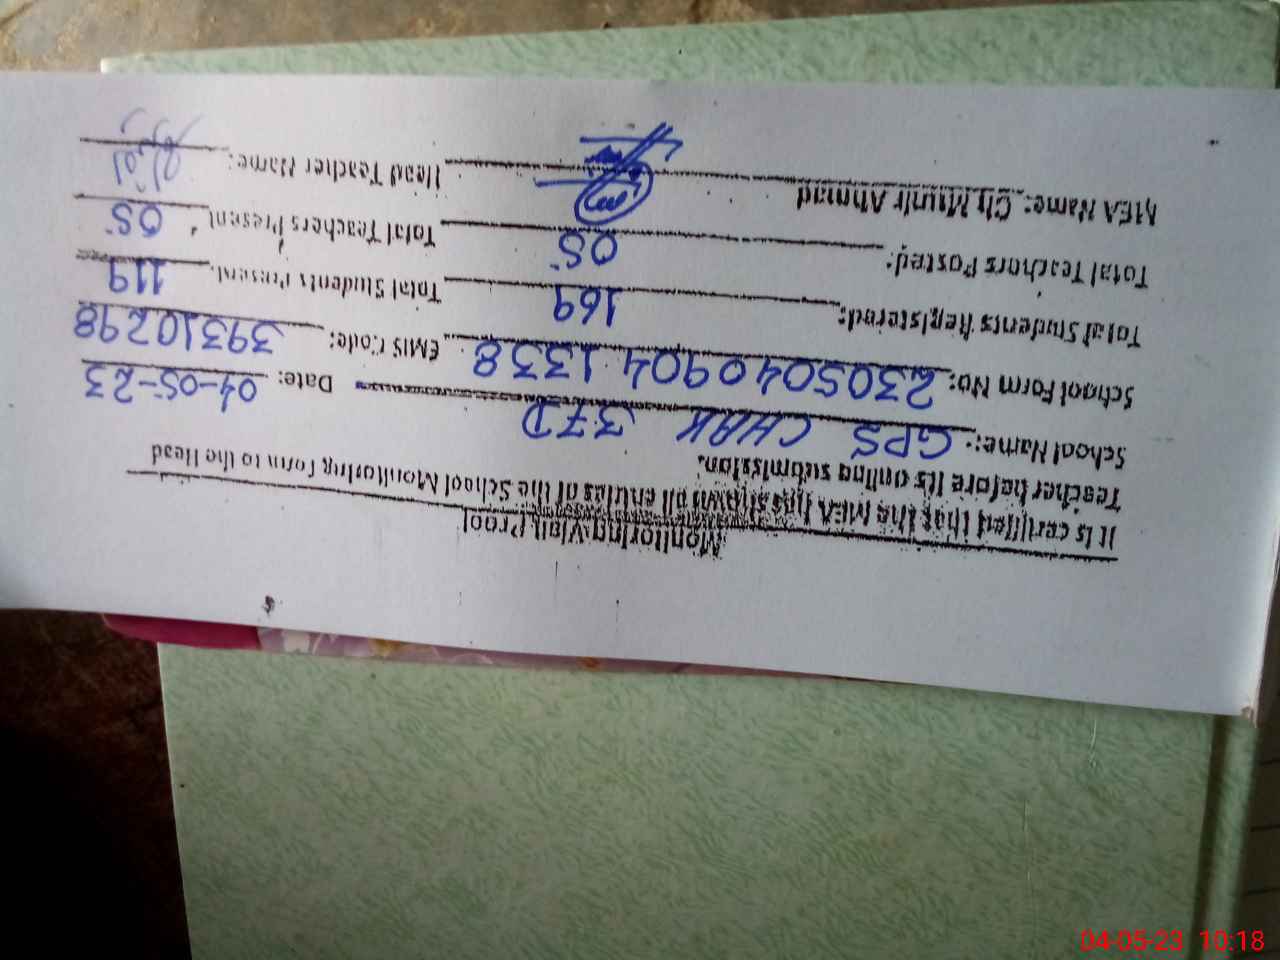 Monitoring Visit Proof
It is certified that the MEA has shown all entries of the School Monitoring Form to the Head
Teacher before its online submission.
School Name: GPS CHAK 37D Date: 04-05-23
School Form No: 2305040904 1338 EMIS Code: 39310298
Total Students Registered: 169 Total Students Present 119
Total Teachers Posted: 05 Total Teachers Present 05
MEA Name: Ch Munir Ahmad Head Teacher Name:
04-05-23 10:18